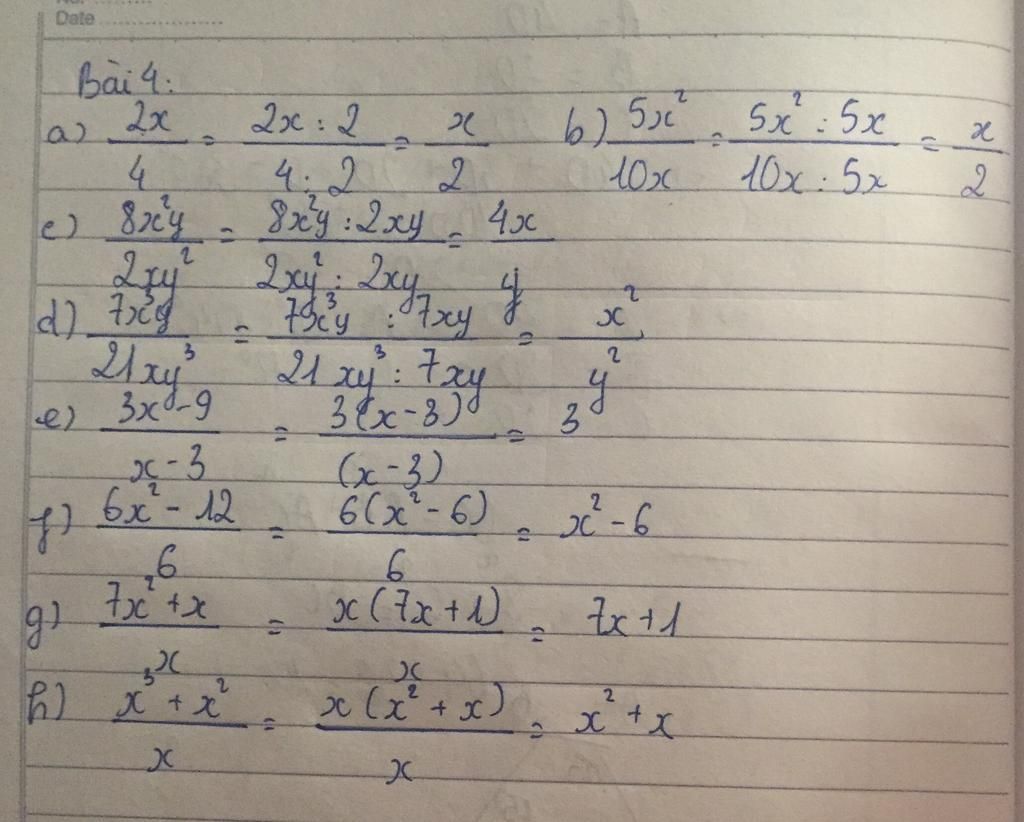 No.
Date
Bài 4:
a) 2x/4 = 2x : 2/4 : 2 = x/2 b) 5x²/10x = 5x² : 5x/10x : 5x = x/2
c) 8x²y/2xy² = 8x²y : 2xy/2xy² : 2xy = 4x/y
d) 7x³y/21xy³ = 7x³y : 7xy/21xy³ : 7xy = x²/y²
e) 3x - 9/x - 3 = 3(x - 3)/(x - 3) = 3
f) 6x² - 12/6 = 6(x² - 6)/6 = x² - 6
g) 7x² + x/x = x(7x + 1)/x = 7x + 1
h) x³ + x²/x = x(x² + x)/x = x² + x